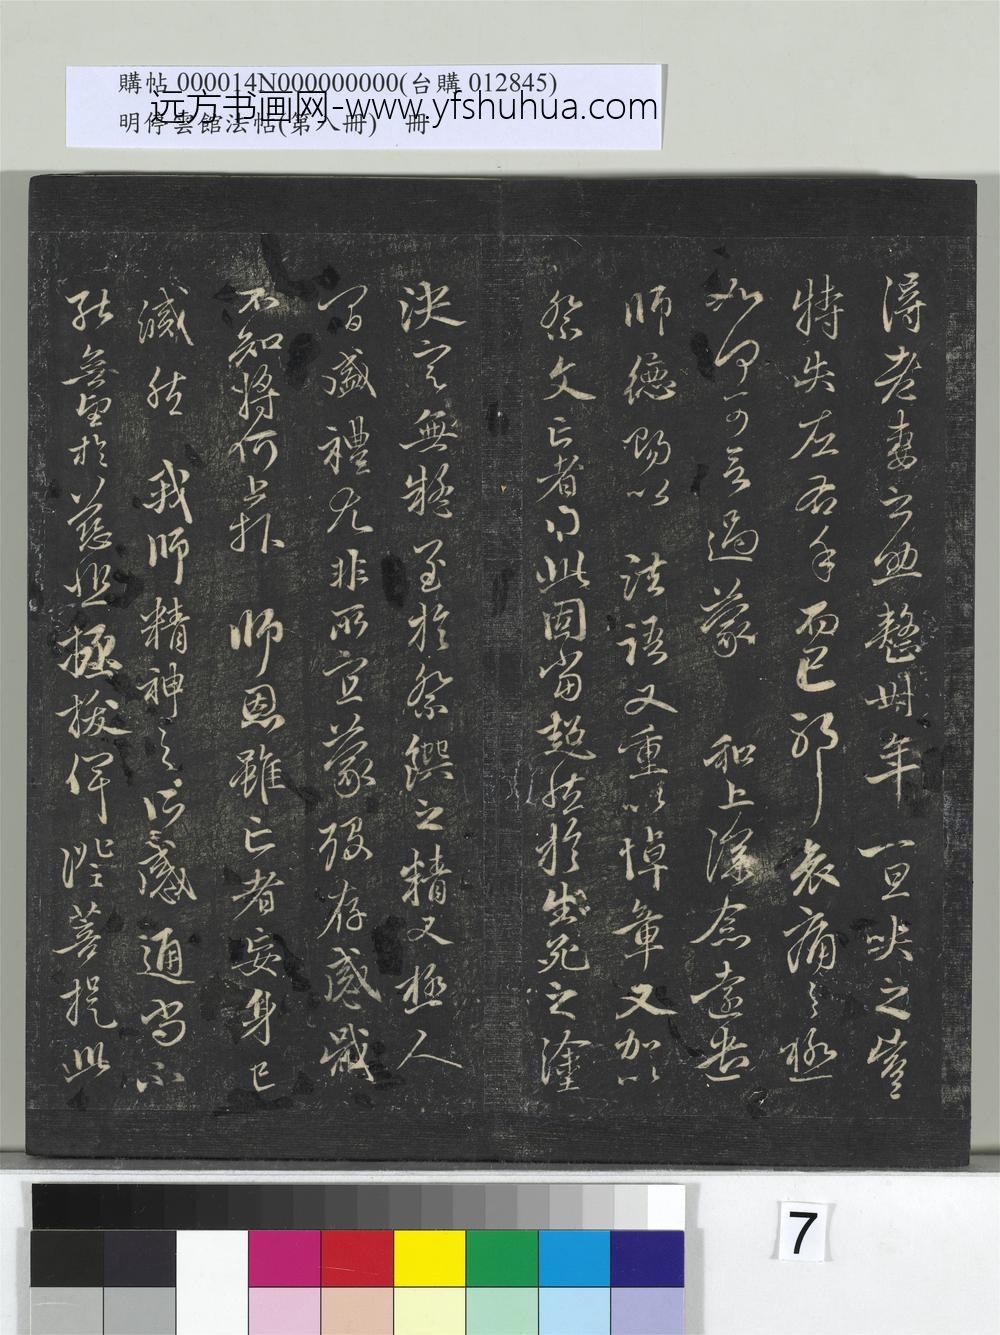 購帖 000014N000000000(台購 012845)
明停雲館法帖(第八冊) 冊
远方书画网-www.yfshuhua.com
得老妻之助整卅年一旦哭之豈
特失左右手而已耶哀痛之極
如何可言過蒙 和上深念遠遣
師德賜以 法語又重以悼章又加以
祭文亡者得此固當超然於生死之塗
決定無疑至於祭饌之精又極人
間盛禮尤非所宜蒙歿存感戴
不知將何上報 師恩雖亡者妄身已
滅然 我師精神之所感通尚不
能無望於慈悲拯拔俾證菩提此
7